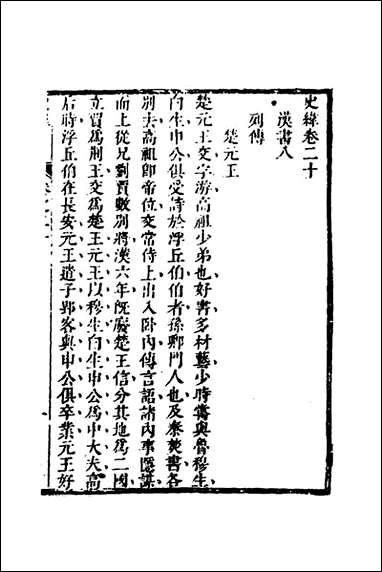 史緯卷二十
漢書八
列傳
楚元王
楚元王交字游高祖少弟也好書多材藝少時嘗與魯穆生
白生申公俱受詩於浮丘伯伯者孫卿門人也及秦焚書各
別去高祖即帝位交常侍上出入卧內傳言語諸內事隱謀
而上從兄劉賈數別將漢六年既廢楚王信分其地爲二國
立賈爲荆王交爲楚王元王以穆生白生申公爲中大夫高
后時浮丘伯在長安元王遣子郢客與申公俱卒業元王好